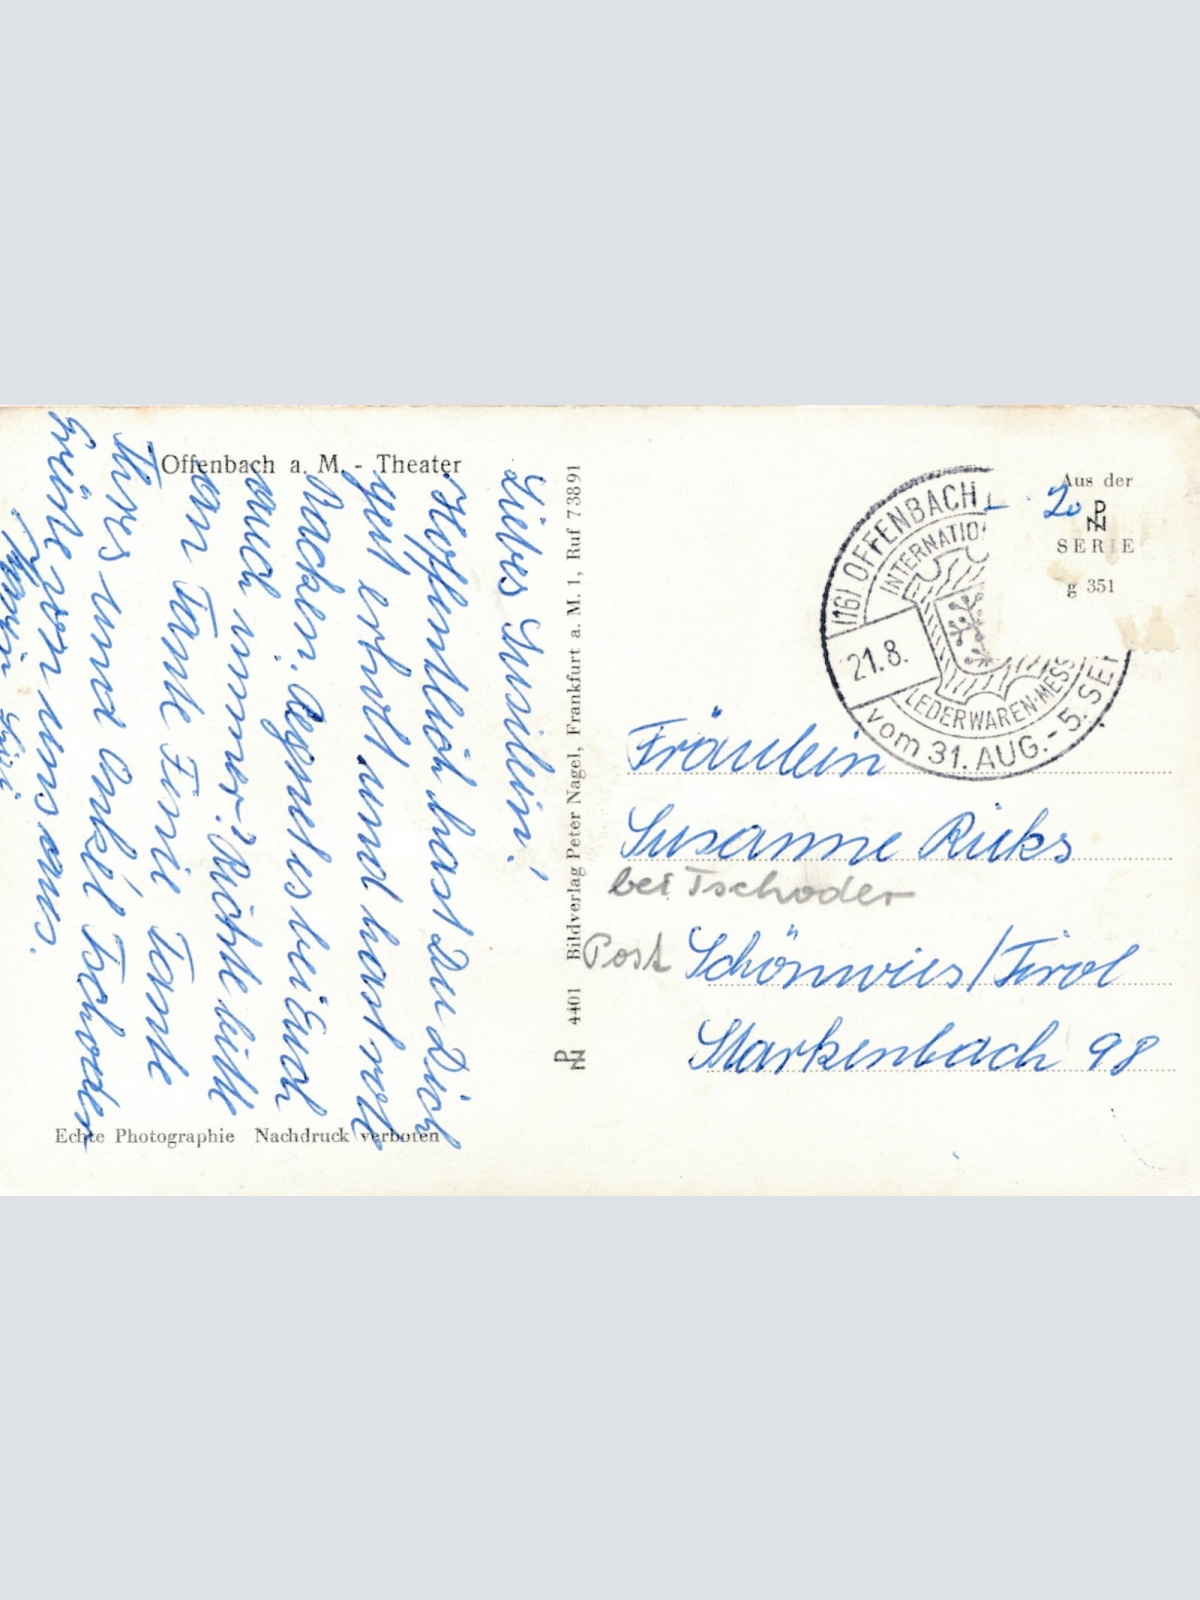 Offenbach a. M. - Theater
Liebes Susilein!
Hoffentlich hast Du Dich
gut erholt und hast rote
Backen. Regnet es bei Euch
auch immer? Richte bitte
an Tante Finie Tante
Thres und Onkel Tschoder
Grüße von uns aus.
Echte Photographie Nachdruck verboten
4401 Bildverlag Peter Nagel, Frankfurt a. M. 1, Ruf 73891
(16) OFFENBACH
INTERNATIO
21.8.
LEDERWAREN-MESS
vom 31. AUG. - 5. SE
20
Aus der
PN
SERIE
g 351
Fräulein
Susanne Rieks
bei Tschoder
Post Schönwies/Tirol
Starkenbach 98